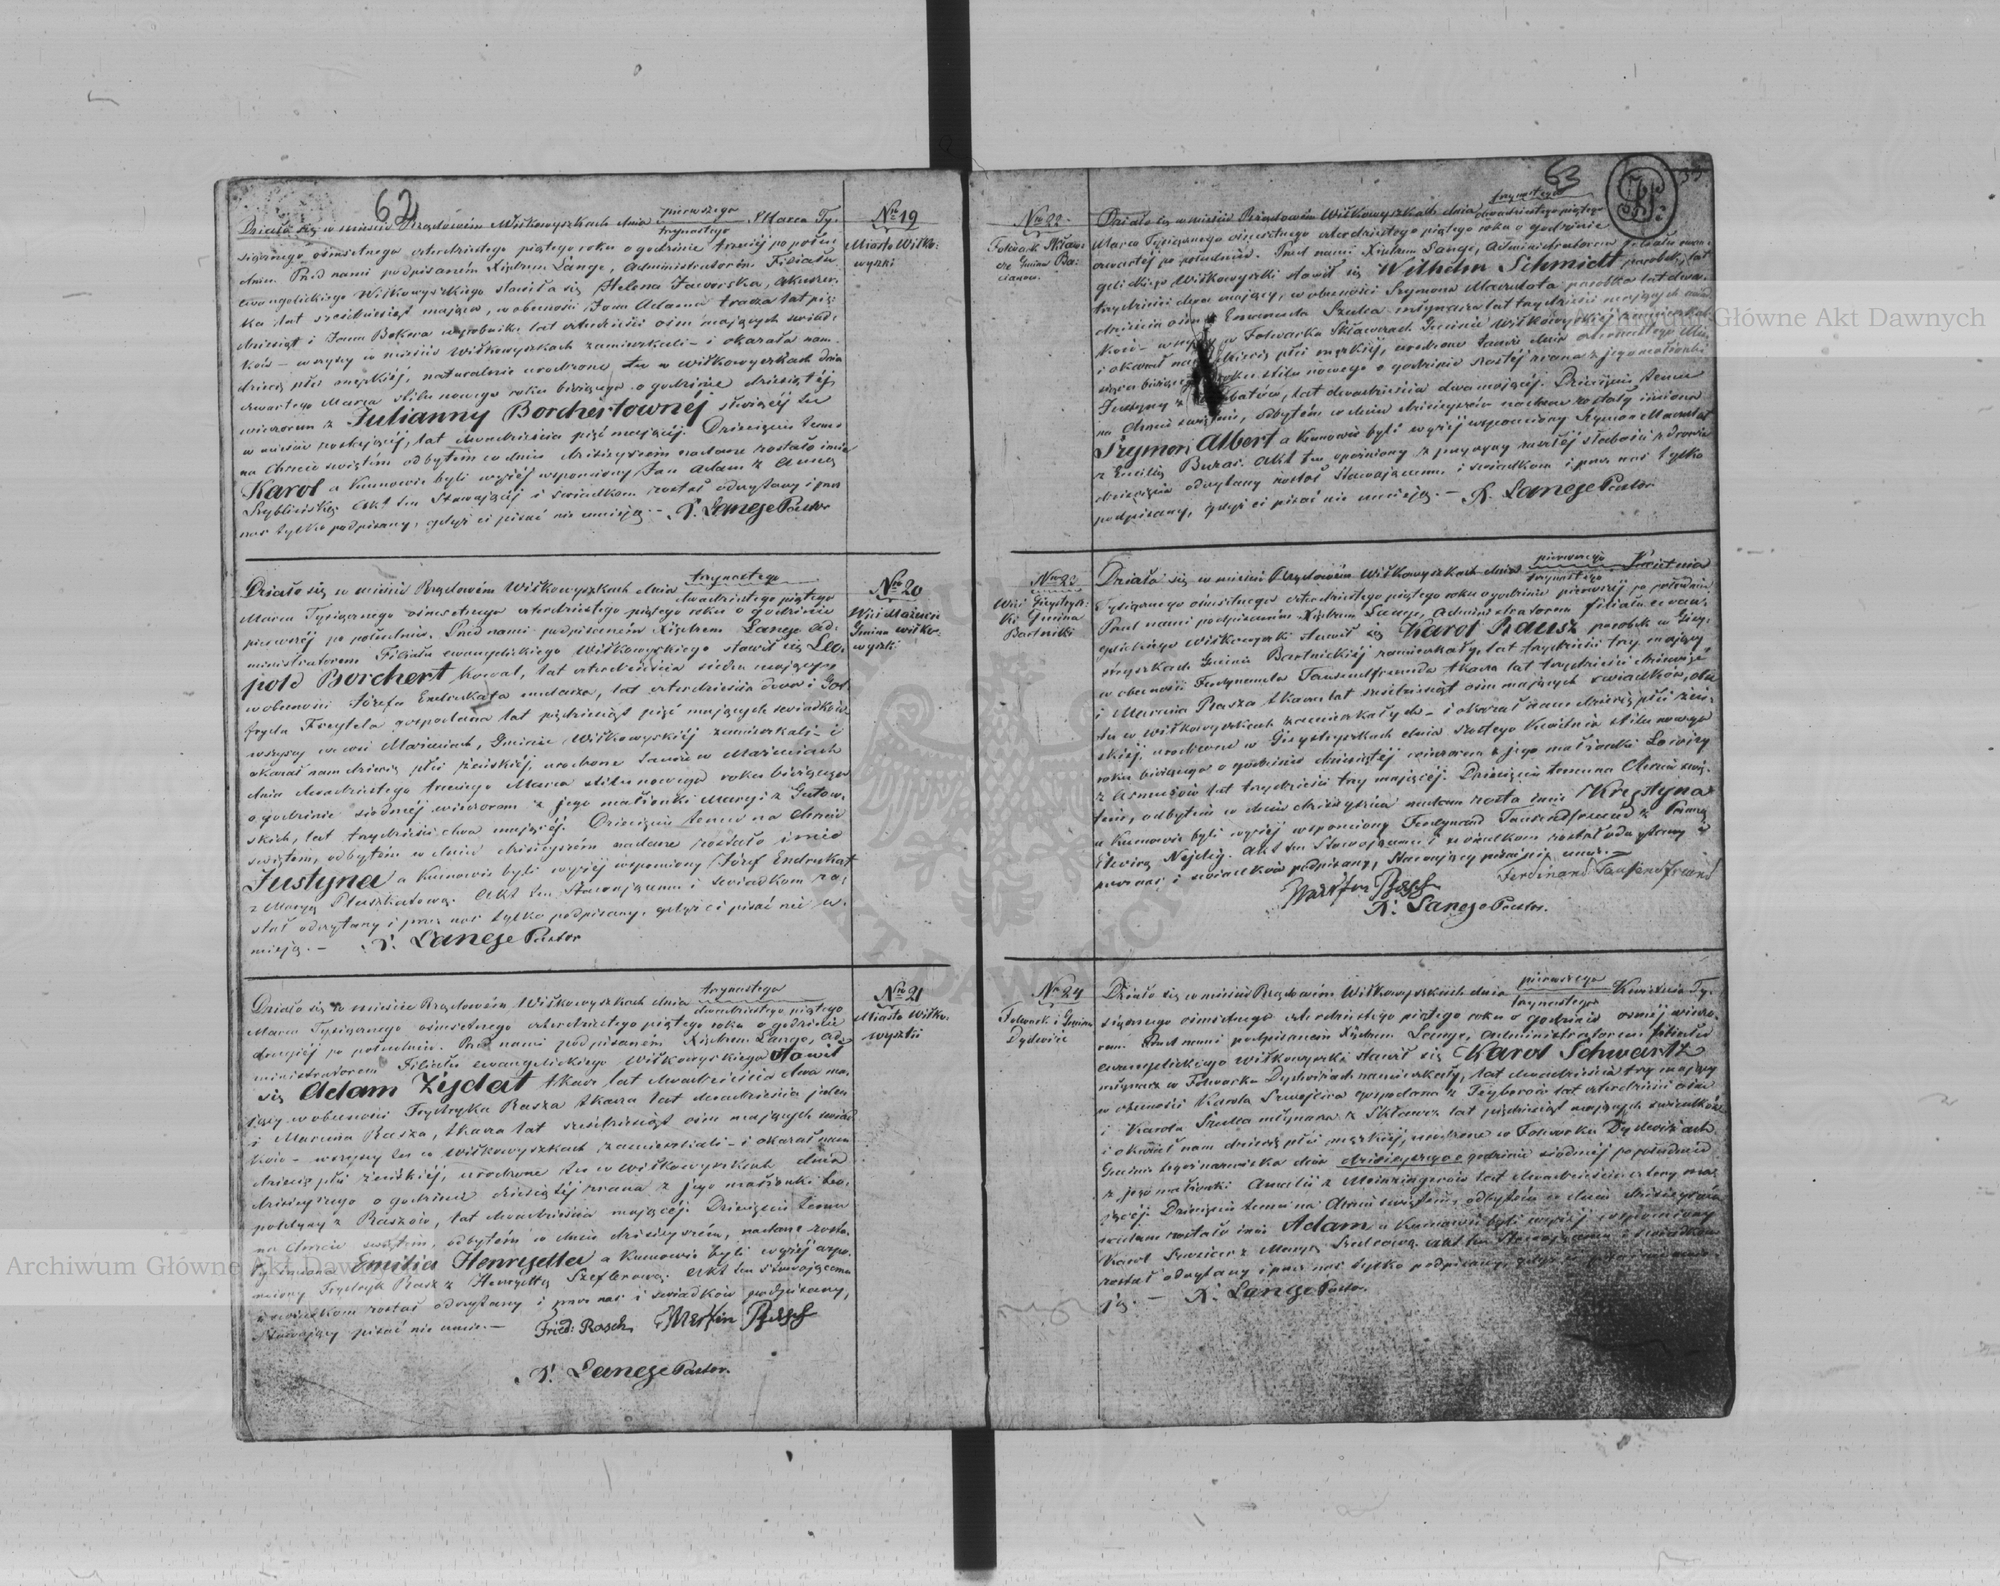 62
Działo się w mieście Rządowém Wiłkowyszkach dnia pierwszego/trzynastego Marca Ty-
siącznego ośmsetnego czterdziestego piątego roku o godzinie trzeciéj po połu-
dniu. Przed nami podpisaném Xiędzem Lange, Administratorém Filiału
ewangelickiego Wiłkowyskiego stawiła się Helena Jaworska, akuszer-
ka lat sześćdziesiąt mająca, w obecności Jana Adama tracza lat pięć-
dziesiąt i Jana Bokera wyrobnika lat czterdzieści ośm mających świad-
ków – wszyscy w mieście Wiłkowyszkach zamieszkali – i okazała nam
dziecię płci męzkiéj, naturalnie urodzone tu w Wiłkowyszkach dnia
czwartego Marca stilu nowego roku bieżącego o godzinie dziesiątéj
wieczorem z Julianny Borchertownéj służącéj tu
w mieście zostającéj, lat dwadzieścia pięć mającéj. Dziecięciu temu
na Chrzcie świętém odbytém w dniu dzisiejszém nadane zostało imie
Karol a Kumowie byli wyżéj wspomniony Jan Adam z Anną
akt ten Stawającéj i świadkom został odczytany i przez
nas tylko podpisany, gdyż ci pisać nie umieją. – Lange Pastor
Nro 19
Miasto Wiłko-
wyszki
Działo się w mieście Rządowém Wiłkowyszkach dnia trzynastego/dwudziestego piątego
Marca Tysiącznego ośmsetnego czterdziestego piątego roku o godzinie
pierwszéj po południu. Przed nami podpisaném Xiędzem Lange Ad-
ministratorem Filiału ewangelickiego Wiłkowyskiego stawił się Leo-
pold Borchert kowal, lat czterdzieścia siedm mający,
w obecności Józefa Endrukata lat czterdzieścia dwa i Got-
fryda Freytela gospodarza lat pięćdziesiąt pięć mających świadków
wszyscy we wsi Gminie Wiłkowyskiéj zamieszkali – i
okazał nam dziecię płci żeńskiéj, urodzone tamże w
dnia dwudziestego trzeciego Marca stilu nowego roku bieżącego
o godzinie siódméj wieczorem z jego małżonki Maryi z Gutow-
skich, lat trzydzieści dwa mającéj. Dziecięciu temu na Chrzcie
świętem, odbytém w dniu dzisiejszém nadane zostało imie
Justyna a Kumowie byli wyżéj wspomniony Józef Endrukat
z Maryą akt ten Stawającemu i świadkom zo-
stał odczytany i przez nas tylko podpisany, gdyż ci pisać nie u-
mieją. – Lange Pastor
Nro 20
Wieś
Gmina Wiłko-
wyszki
Działo się w mieście Rządowém Wiłkowyszkach dnia trzynastego/dwudziestego piątego
Marca Tysiącznego ośmsetnego czterdziestego piątego roku o godzinie
drugiéj po południu. Przed nami podpisaném Xiędzem Lange, Ad-
ministratorem Filiału ewangelickiego Wiłkowyskiego stawił
się Adam Zÿdat tkacz lat dwadzieścia dwa ma-
jący w obecności Frydryka Rasza tkacza lat dwadzieścia jeden
i Marcina Rasza, tkacza lat sześćdziesiąt ośm mających świad-
ków – wszyscy tu w Wiłkowyszkach zamieszkali – i okazał nam
dziecię płci żeńskiéj, urodzone tu w Wiłkowyszkach dnia
dzisiejszego o godzinie dziesiątéj zrana z jego małżonki Leo-
poldyny z Raszów, lat dwadzieścia mającéj. Dziecięciu temu
na Chrzcie świętém, odbytém w dniu dzisiejszém, nadane zosta-
ły imiona Emilia Henryetta a Kumowie byli wyżéj wspo-
mniony Frydryk Rasz z Henryettą Szeflerową. akt ten Stawającemu
i świadkom został odczytany i przez nas i świadków podpisany,
Stawający pisać nie umie. – Fried: Rasch Merten
Lange Pastor.
Nro 21
Miasto Wiłko-
wyszki
63
Nro 22
Folwark
Gmina
Działo się w mieście Rządowém Wiłkowyszkach dnia trzynastego/dwudziestego piątego
Marca Tysiącznego ośmsetnego czterdziestego piątego roku o godzinie
czwartéj po południu. Przed nami Xiędzem Lange, Administratorem Filiału ewan-
gelickiego Wiłkowyski stawił się Wilhelm Schmidt parobek, lat
trzydzieści dwa mający, w obecności Szymona parobka lat dwa-
dzieścia ośm i Szulca, młynarza lat trzydzieści mających świad-
ków – w Folwarku Gminie Wiłkowyskiéj zamieszkali
i okazał dziecię płci męzkiéj, urodzone tamże dnia Mie-
siąca bieżącego roku stilu nowego o godzinie szóstéj zrana z jego małżonki
Justyny z lat dwadzieścia dwa mającéj. Dziecięciu temu
na Chrzcie świętém, odbytém w dniu dzisiejszém nadane zostały imiona
Szymon Albert a Kumowie byli wyżéj wspomniony Szymon
z Emilią akt ten opóźniony z przyczyny zaszłéj słabości zdrowia
dziecięcia odczytany został Stawającemu i świadkom i przez nas tylko
podpisany, gdyż ci pisać nie umieją. – Lange Pastor
Nro 23
Wieś
Gmina
Bartniki
Działo się w mieście Rządowém Wiłkowyszkach dnia pierwszego/trzynastego Kwietnia
Tysiącznego ośmsetnego czterdziestego piątego roku o godzinie pierwszéj po południu
Przed nami podpisaném Xiędzem Lange, Administratorem filiału ewan-
gelickiego Wiłkowyski stawił się Karol Rausz parobek w
Gminie Bartnickiéj zamieszkały, lat trzydzieści trzy mający
w obecności Ferdynanda Tausendfreunda tkacza lat trzydzieści
i Marcina Rasza tkacza lat sześćdziesiąt ośm mających świadków, obu
tu w Wiłkowyszkach zamieszkałych – i okazał nam dziecię płci żeń-
skiéj, urodzone w dnia szóstego Kwietnia stilu nowego
roku bieżącego o godzinie dziewiątéj wieczorem z jego małżonki Lowizy
z lat trzydzieści trzy mającéj. Dziecięciu temu na Chrzcie świę-
tém, odbytém w dniu dzisiejszém nadane zosta imie Krystyna
a Kumowie byli wyżéj wspomniony Ferdynand Tausendfreund z Panną
Elwirą akt ten Stawającemu i świadkom został odczytany i
przez nas i świadków podpisany, Stawający pisać nie umie. –
Ferdinand Tausendfreund
Lange Pastor.
Nro 24
Folwark i Gmina
Dydwiże
Działo się w mieście Rządowém Wiłkowyszkach dnia pierwszego/trzynastego Kwietnia Ty-
siącznego ośmsetnego czterdziestego piątego roku o godzinie ósméj wieczo-
rem. Przed nami podpisaném Xiędzem Lange, Administratorem filiału
ewangelickiego Wiłkowyski stawił się Karol Schwartz
młynarz w Folwarku Dydwiżach zamieszkały, lat dwadzieścia trzy mający
w obecności Karola Szwejcera gospodarza z lat czterdzieści ośm
i Karola Szulca młynarza z lat pięćdziesiąt mających świadków
i okazał nam dziecię płci męzkiéj, urodzone w Folwarku Dydwiżach
Gminie tegoż nazwiska dnia dzisiejszego o godzinie siódméj po południu
z jego małżonki Amalii z lat dwadzieścia cztery ma-
jącéj. Dziecięciu temu na Chrzcie świętém, odbytém w dniu dzisiejszém
nadane zostało imie Adam a Kumowie byli wyżéj wspomniony
Karol z Maryą Szulcową. akt ten Stawającemu i świadkom
został odczytany i przez nas tylko podpisany, gdyż
ją. – Lange Pastor.
Archiwum Główne Akt Dawnych
Archiwum Główne Akt Dawnych